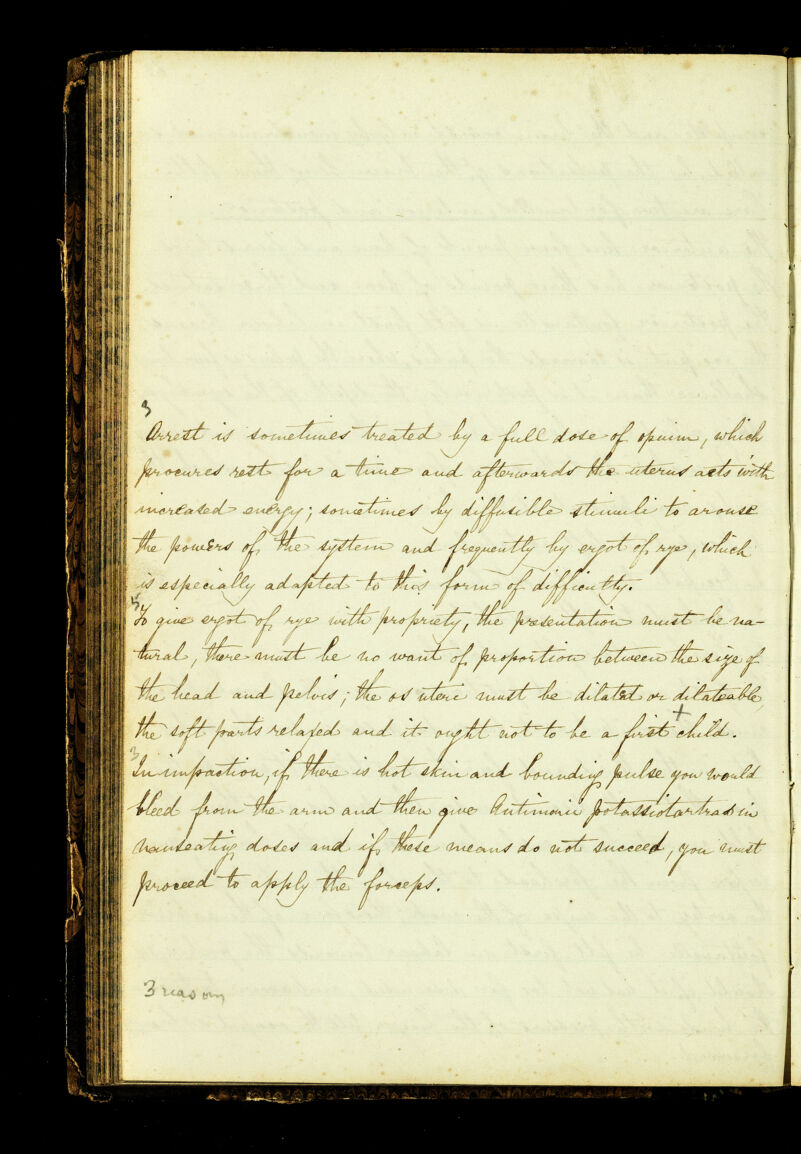 3
Arrest is sometimes treated by a full dose of opium, which
procures rest for a time and afterwards the uterus acts with
increased energy; sometimes by diffusible stimuli to arouse
the powers of the system and frequently by ergot of rye, which
is especially adapted to this form of difficulty.
5
To give ergot of rye with propriety, the presentation must be na-
tural, there must be no want of proportion between the size of
the head and pelvis; the os uteri must be dilated or dilateable,
+
the soft parts relaxed and it ought not to be a first child.
3
In impaction, if there is hot skin and bounding pulse you would
bleed from the arm and then give Antimonii potassiotartras in
nauseating doses and if these means do not succeed, you must
proceed to apply the forceps.
3 reason